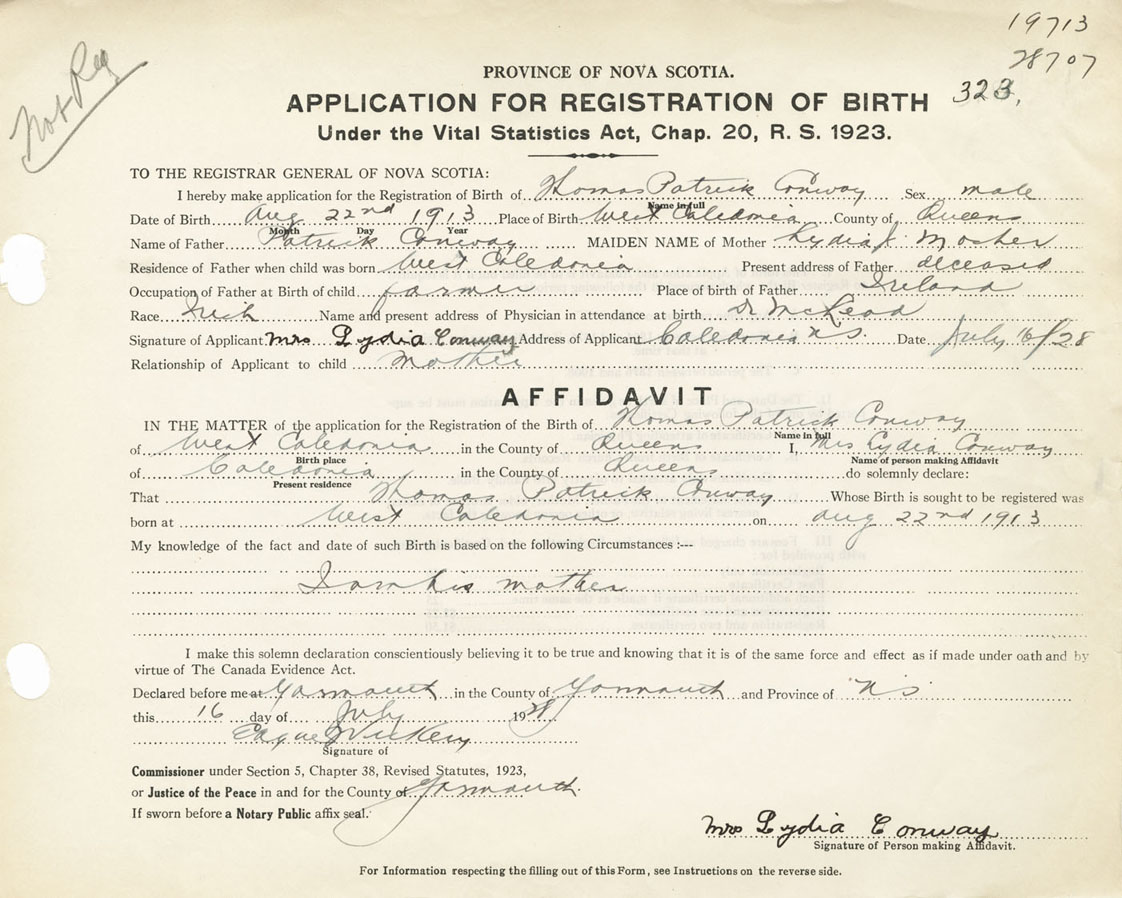 19713
28707
323,
Not Reg
PROVINCE OF NOVA SCOTIA.
APPLICATION FOR REGISTRATION OF BIRTH
Under the Vital Statistics Act, Chap. 20, R. S. 1923.
TO THE REGISTRAR GENERAL OF NOVA SCOTIA:
I hereby make application for the Registration of Birth of Thomas Patrick Conway Sex male
Name in full
Date of Birth Aug 22nd 1913 Place of Birth West Caledonia County of Queens
Month Day Year
Name of Father Patrick Conway MAIDEN NAME of Mother Lydia J. Mosher
Residence of Father when child was born West Caledonia Present address of Father deceased
Occupation of Father at Birth of child farmer Place of birth of Father Ireland
Race Irish Name and present address of Physician in attendance at birth Dr McLeod
Signature of Applicant Mrs Lydia Conway Address of Applicant Caledonia N S. Date July 16/28
Relationship of Applicant to child Mother
AFFIDAVIT
IN THE MATTER of the application for the Registration of the Birth of Thomas Patrick Conway
Name in full
of West Caledonia in the County of Queens I, Mrs Lydia Conway
Birth place Name of person making Affidavit
of Caledonia in the County of Queens do solemnly declare:
Present residence
That Thomas Patrick Conway Whose Birth is sought to be registered was
born at West Caledonia on Aug 22nd 1913
My knowledge of the fact and date of such Birth is based on the following Circumstances :---
I am his mother
I make this solemn declaration conscientiously believing it to be true and knowing that it is of the same force and effect as if made under oath and by
virtue of The Canada Evidence Act.
Declared before me at Yarmouth in the County of Yarmouth and Province of N S
this 16 day of July 1928
Signature of
Commissioner under Section 5, Chapter 38, Revised Statutes, 1923,
or Justice of the Peace in and for the County of Yarmouth
If sworn before a Notary Public affix seal.
Mrs Lydia Conway
Signature of Person making Affidavit.
For Information respecting the filling out of this Form, see Instructions on the reverse side.